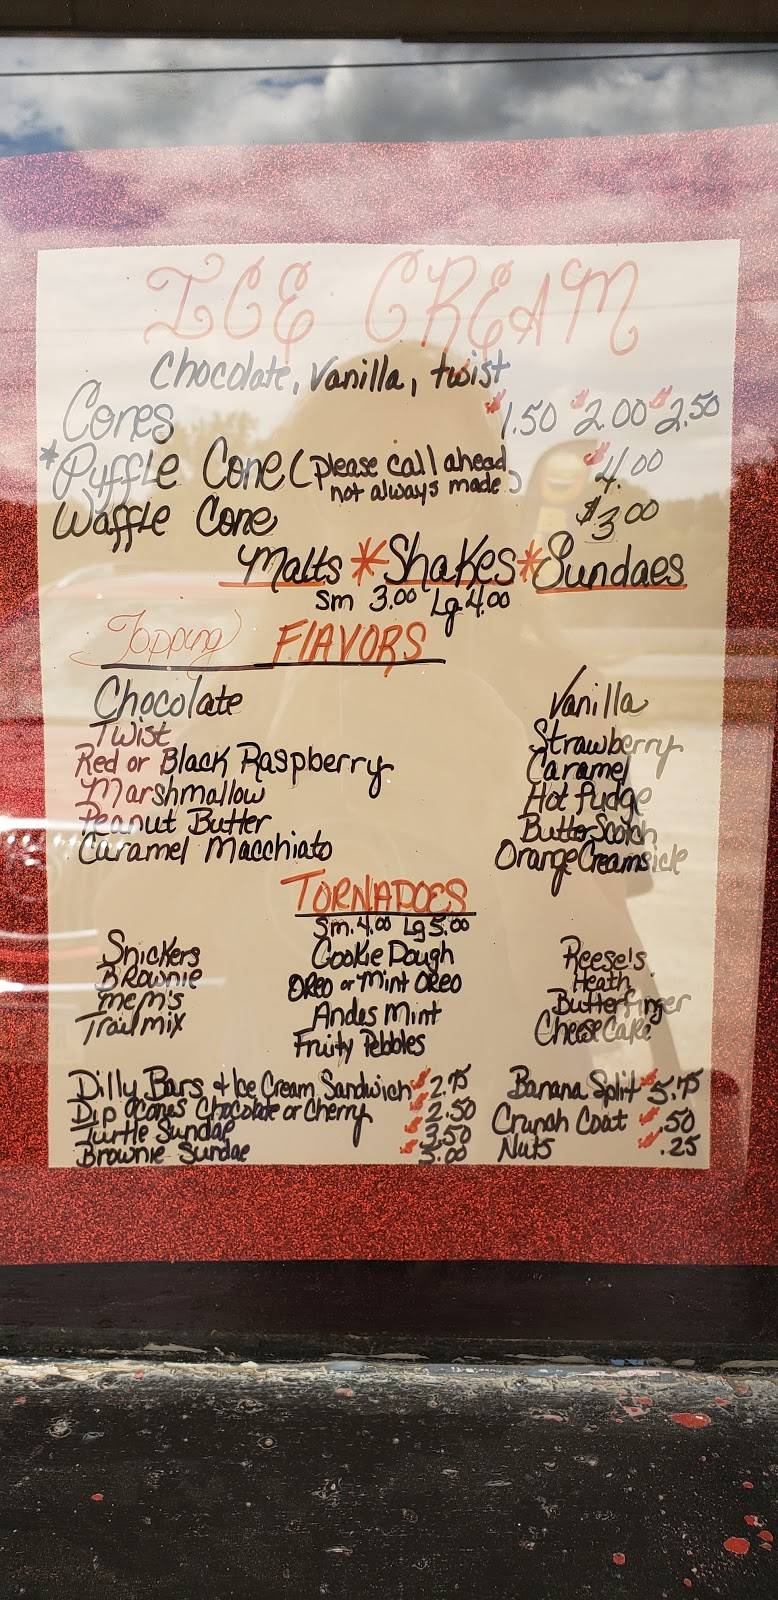 ICE CREAM
Chocolate, Vanilla, twist
Cones $1.50 $2.00 $2.50
*Puffle Cone (please call ahead not always made) $4.00
Waffle Cone $3.00
Malts * Shakes * Sundaes
Sm 3.00 Lg 4.00
Topping FLAVORS
Chocolate Vanilla
Twist Strawberry
Red or Black Raspberry Caramel
Marshmallow Hot fudge
Peanut Butter ButterScotch
Caramel Macchiato Orange Creamsicle
TORNADOES
Sm. 4.00 Lg 5.00
Snickers Cookie Dough Reese's
Brownie OREO or Mint OREO Heath
M&M's Andes Mint Butterfinger
Trail mix Fruity Pebbles CheeseCake
Dilly Bars + Ice Cream Sandwich $2.75 Banana Split $5.75
Dip Cones Chocolate or Cherry $2.50 Crunch Coat $.50
Turtle Sundae $3.50 Nuts $.25
Brownie Sundae $5.00